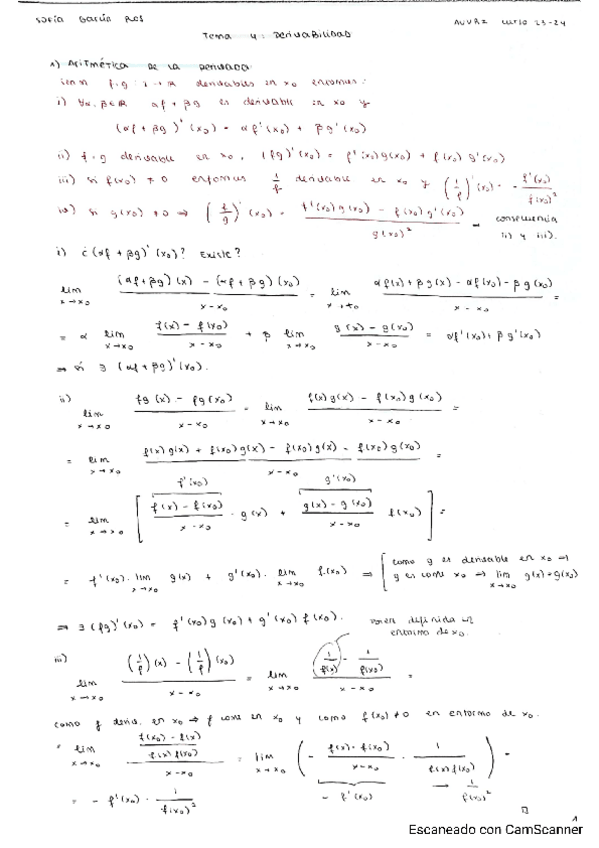 Sofía García Ros AUVR2 curso 23-24
Tema 4: Derivabilidad
1) Aritmética de la derivada
sean f, g: I → R derivables en x₀ entonces:
i) ∀α, β∈R αf + βg es derivable en x₀ y
(αf + βg)'(x₀) = αf'(x₀) + βg'(x₀)
ii) f·g derivable en x₀, (fg)'(x₀) = f'(x₀)g(x₀) + f(x₀)g'(x₀)
iii) si f(x₀) ≠ 0 entonces 1/f derivable en x₀ y (1/f)'(x₀) = - f'(x₀)/f(x₀)²
iv) si g(x₀) ≠ 0 ⇒ (f/g)'(x₀) = (f'(x₀)g(x₀) - f(x₀)g'(x₀))/g(x₀)² → consecuencia ii) y iii).
i) ¿(αf + βg)'(x₀)? Existe?
lim x→x₀ ((αf + βg)(x) - (αf + βg)(x₀))/(x - x₀) = lim x→x₀ (αf(x) + βg(x) - αf(x₀) - βg(x₀))/(x - x₀) =
= α lim x→x₀ (f(x) - f(x₀))/(x - x₀) + β lim x→x₀ (g(x) - g(x₀))/(x - x₀) = αf'(x₀) + βg'(x₀)
⇒ si ∃ (αf + βg)'(x₀).
ii) lim x→x₀ (fg(x) - fg(x₀))/(x - x₀) = lim x→x₀ (f(x)g(x) - f(x₀)g(x₀))/(x - x₀) =
= lim x→x₀ (f(x)g(x) + f(x₀)g(x) - f(x₀)g(x) - f(x₀)g(x₀))/(x - x₀) =
f'(x₀) g'(x₀)
= lim x→x₀ [(f(x) - f(x₀))/(x - x₀) · g(x) + (g(x) - g(x₀))/(x - x₀) f(x₀)] =
= f'(x₀) · lim x→x₀ g(x) + g'(x₀) · lim x→x₀ f(x₀) ⇒ [como g es derivable en x₀ ⇒
g es cont x₀ ⇒ lim x→x₀ g(x) = g(x₀)
⇒ ∃ (fg)'(x₀) = f'(x₀)g(x₀) + g'(x₀)f(x₀).
bien definida en
entorno de x₀.
iii) lim x→x₀ ((1/f)(x) - (1/f)(x₀))/(x - x₀) = lim x→x₀ (1/f(x) - 1/f(x₀))/(x - x₀) =
como f deriv. en x₀ ⇒ f cont en x₀ y como f(x₀) ≠ 0 en entorno de x₀.
= lim x→x₀ ((f(x₀) - f(x))/(f(x)f(x₀)))/(x - x₀) = lim x→x₀ (- (f(x) - f(x₀))/(x - x₀) · 1/(f(x)f(x₀))) =
- f'(x₀) → 1/f(x₀)²
= - f'(x₀) · 1/f(x₀)²
□
1
Escaneado con CamScanner